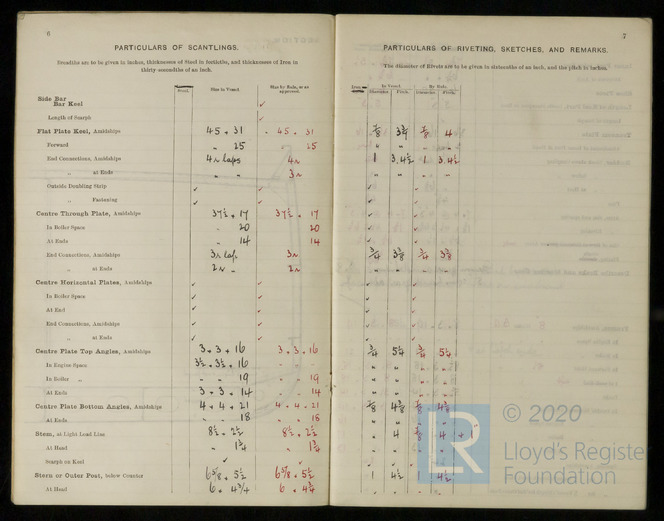 6
PARTICULARS OF SCANTLINGS.
Breadths are to be given in inches, thickness of Steel in twentieths, and thickness of Iron in
thirty-seconds of an inch.
Steel. Size in Vessel. Size by Rule, or as approved.
Side Bar
Bar Keel ✓
Length of Scarph ✓
Flat Plate Keel, Amidships 45 × 31 45 × 31
Forward „ 25 25
End Connections, Amidships 4r laps 4r
„ at Ends „ „ 3r
Outside Doubling Strip ✓ ✓
„ Fastening ✓ ✓
Centre Through Plate, Amidships 37½ × 17 37½ × 17
In Boiler Space „ 20 20
At Ends „ 14 14
End Connections, Amidships 3r lap 3r
„ at Ends 2r „ 2r
Centre Horizontal Plates, Amidships ✓ ✓
In Boiler Space ✓ ✓
At End ✓ ✓
End Connections, Amidships ✓ ✓
„ at Ends ✓ ✓
Centre Plate Top Angles, Amidships 3 × 3 × 16 3 × 3 × 16
In Engine Space 3½ × 3½ × 16
In Boiler „ „ „ 19 19
At Ends 3 × 3 × 14 14
Centre Plate Bottom Angles, Amidships 4 × 4 × 21 4 × 4 × 21
At Ends „ 18 18
Stem, at Light Load Line 8½ × 2½ 8½ × 2½
At Head „ 1¾ 1¾
Scarph or Keel ✓ ✓
Stern or Outer Post, below Counter 6⅝ × 5½ 6⅝ × 5½
At Head 6 × 4¾ 6 × 4¾
7
PARTICULARS OF RIVETING, SKETCHES, AND REMARKS.
The diameter of Rivets are to be given in sixteenths of an inch, and the pitch in inches.
In Vessel. By Rule.
Diameter. Pitch. Diameter. Pitch.
⅞ 3¾ ⅞ 4
1 3.4½ 1 3.4½
¾ 3⅜ ¾ 3⅜
¾ 5¼ ¾ 5¼
⅞ 4⅜ ⅞ 4⅜
„ 4 ⅞ 4
1 4½ 1 4½
© 2020
Lloyd's Register
Foundation